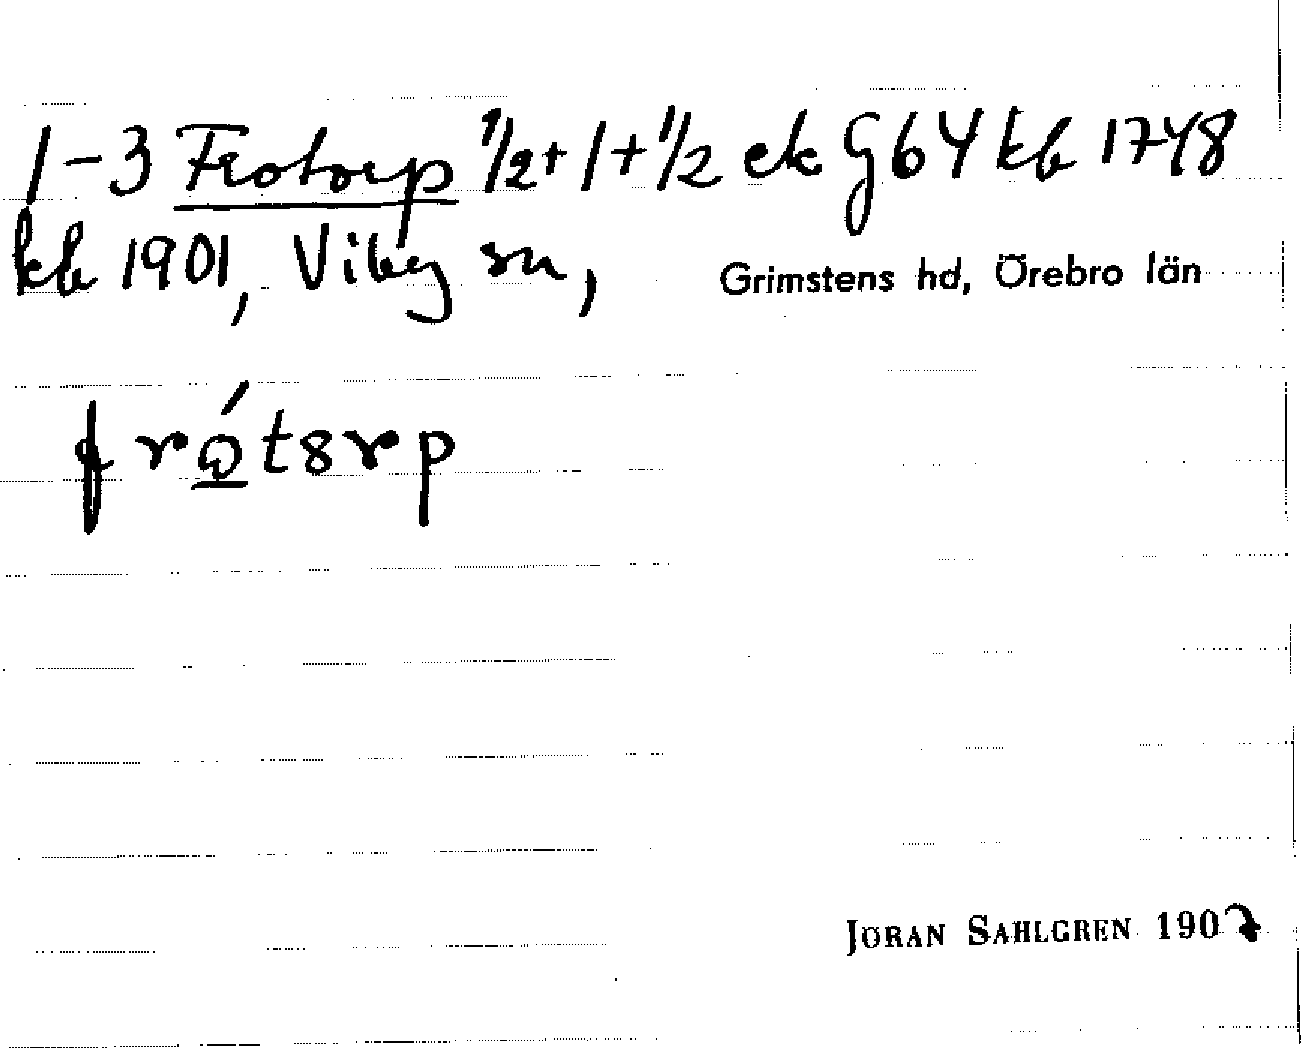 1-3 Frotorp 1/2+1+1/2 ek G64 kb 1748
kb 1901, Viby sn, Grimstens hd, Örebro län
frǫ́t8rp
JÖRAN SAHLGREN 1907